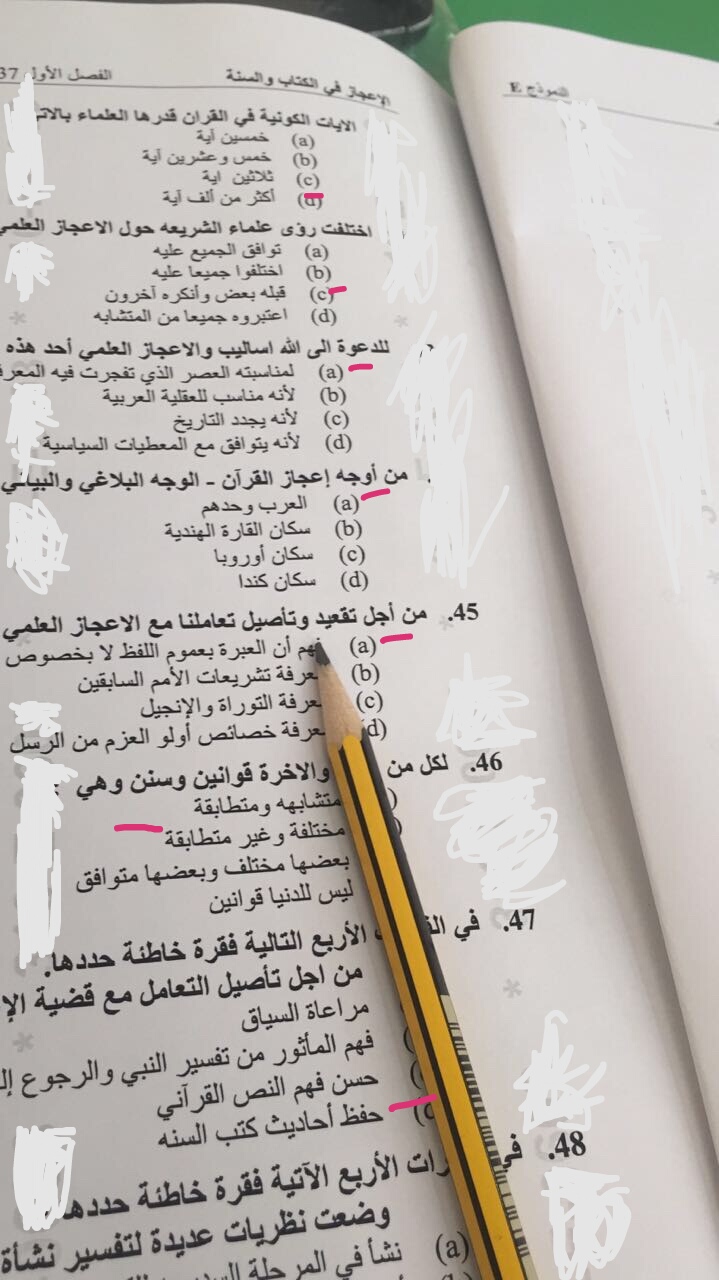 النموذج E
الإعجاز في الكتاب والسنة الفصل الأول 37
الايات الكونية في القران قدرها العلماء بالاتي
(a) خمسين آية
(b) خمس وعشرين آية
(c) ثلاثين اية
(d) أكثر من ألف آية
اختلفت رؤى علماء الشريعه حول الاعجاز العلمي
(a) توافق الجميع عليه
(b) اختلفوا جميعا عليه
(c) قبله بعض وأنكره آخرون
(d) اعتبروه جميعا من المتشابه
للدعوة الى الله اساليب والاعجاز العلمي أحد هذه
(a) لمناسبته العصر الذي تفجرت فيه
(b) لأنه مناسب للعقلية العربية
(c) لأنه يجدد التاريخ
(d) لأنه يتوافق مع المعطيات السياسية
من أوجه إعجاز القرآن - الوجه البلاغي والبياني
(a) العرب وحدهم
(b) سكان القارة الهندية
(c) سكان أوروبا
(d) سكان كندا
45. من أجل تقعيد وتأصيل تعاملنا مع الاعجاز العلمي
(a) فهم أن العبرة بعموم اللفظ لا بخصوص
(b) معرفة تشريعات الأمم السابقين
(c) معرفة التوراة والإنجيل
(d) معرفة خصائص أولو العزم من الرسل
46. لكل من والاخرة قوانين وسنن وهي :
متشابهه ومتطابقة
مختلفة وغير متطابقة
بعضها مختلف وبعضها متوافق
ليس للدنيا قوانين
47. في الأربع التالية فقرة خاطئة حددها.
من اجل تأصيل التعامل مع قضية
مراعاة السياق
فهم المأثور من تفسير النبي والرجوع
حسن فهم النص القرآني
حفظ أحاديث كتب السنه
48. في الأربع الآتية فقرة خاطئة حددها
وضعت نظريات عديدة لتفسير نشأة
(a) نشأ في المرحلة